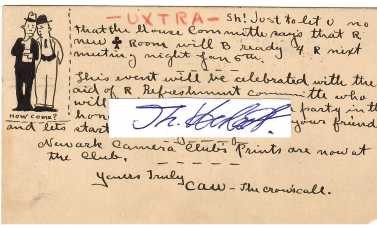 -UXTRA- Sh! Just to let U no
that the House Committee says that R
new Room will B ready 4 R next
meeting night Jan 5th.
This event will be celebrated with the
aid of R Refreshment committee who
will party in the
hon your friend
and lets start
HOW COME?
Newark Camera Club's Prints are now at
the Club.
Yours Truly
Caw - The crowscall.